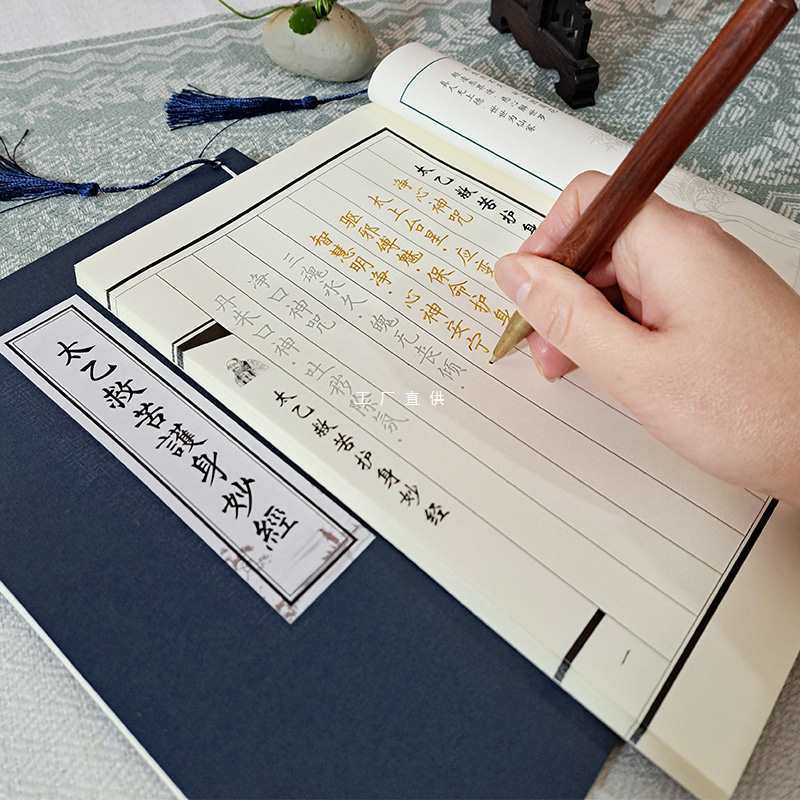 真人无上德·世世为仙家
太乙救苦护身
净心神咒
太上台星·应变
驱邪缚魅·保命护身
智慧明净·心神安宁
三魂永久·魄无丧倾·
净口神咒
丹朱口神·吐秽除氛·
太乙救苦护身妙经
一
太乙救苦護身妙經
工厂直供